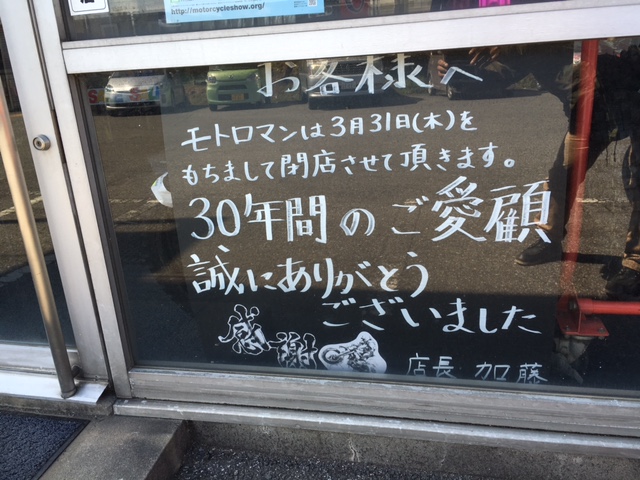 http://motorcycleshow.org/
お客様へ
モトロマンは3月31日(木)を
もちまして閉店させて頂きます。
30年間のご愛顧
誠にありがとう
ございました
感謝
店長 加藤